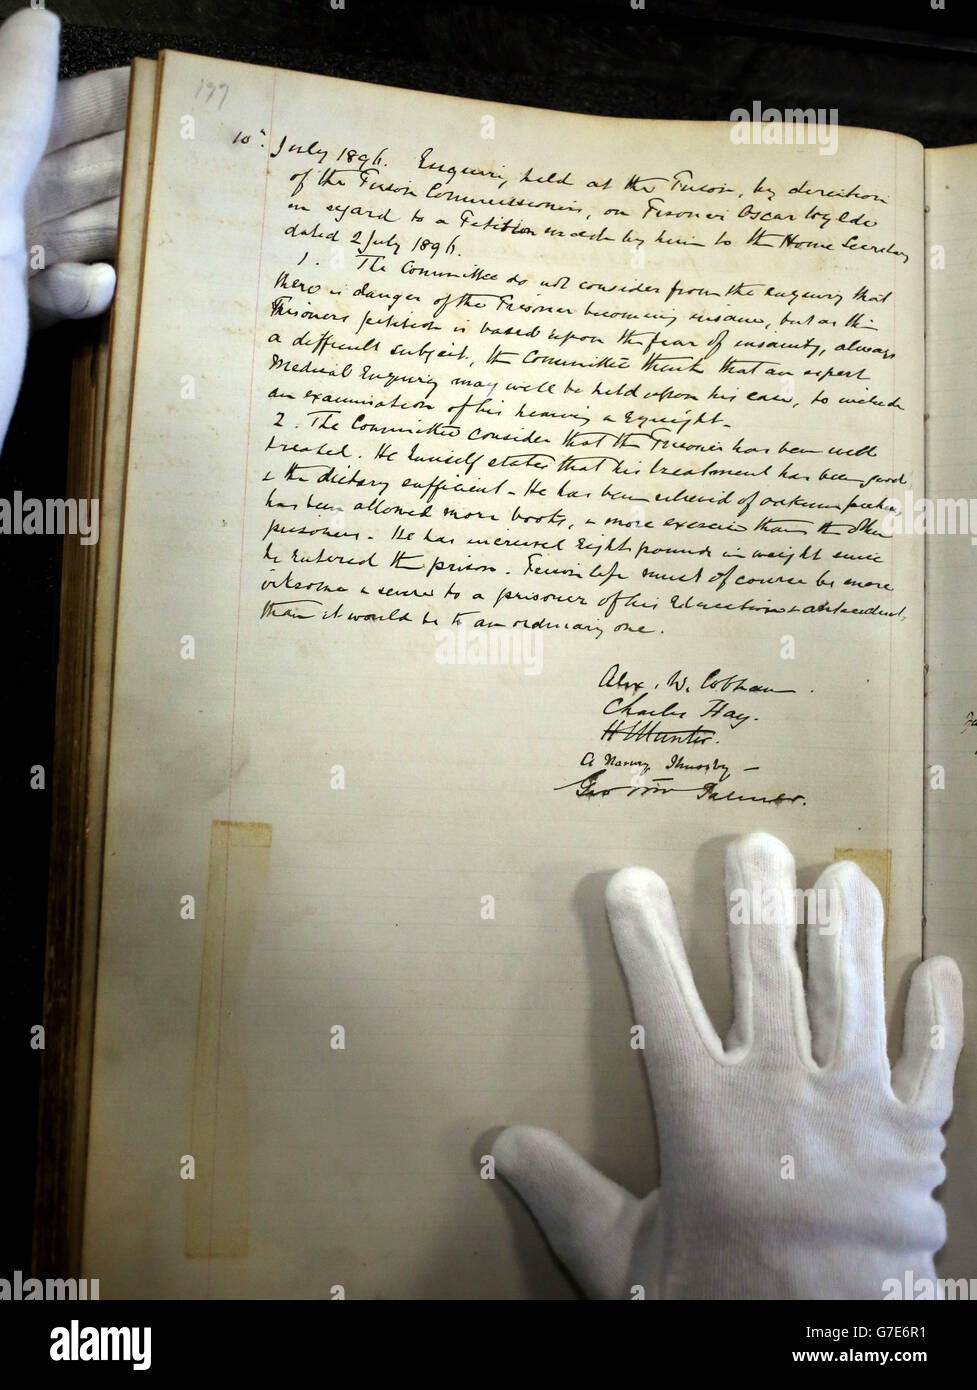 177
10th July 1896. Enquiry, held at the Prison, by direction
of the Prison Commissioners, on Prisoner Oscar Wylde
in regard to a Petition made by him to the Home Secretary
dated 2 July 1896.
1. The Committee do not consider from the enquiry that
there is danger of the Prisoner becoming insane, but as the
Prisoners petition is based upon the fear of insanity, always
a difficult subject, the Committee think that an expert
Medical Enquiry may well be held upon his case, to include
an examination of his hearing & Eyesight-
2. The Committee consider that the Prisoner has been well
treated. He himself states that his treatment has been good,
& the dietary sufficient - He has been relieved of oakum picking,
has been allowed more books, & more exercise than the other
prisoners - He has increased Eight pounds in weight since
he entered the prison. Prison life must of course be more
irksome & severe to a prisoner of his Education & antecedents,
than it would be to an ordinary one.
Alex. W. Cobham.
Charles Hay.
H Hunter.
G Thursby -
Geo Wm Palmer.
alamy
Image ID: G7E6R1
www.alamy.com